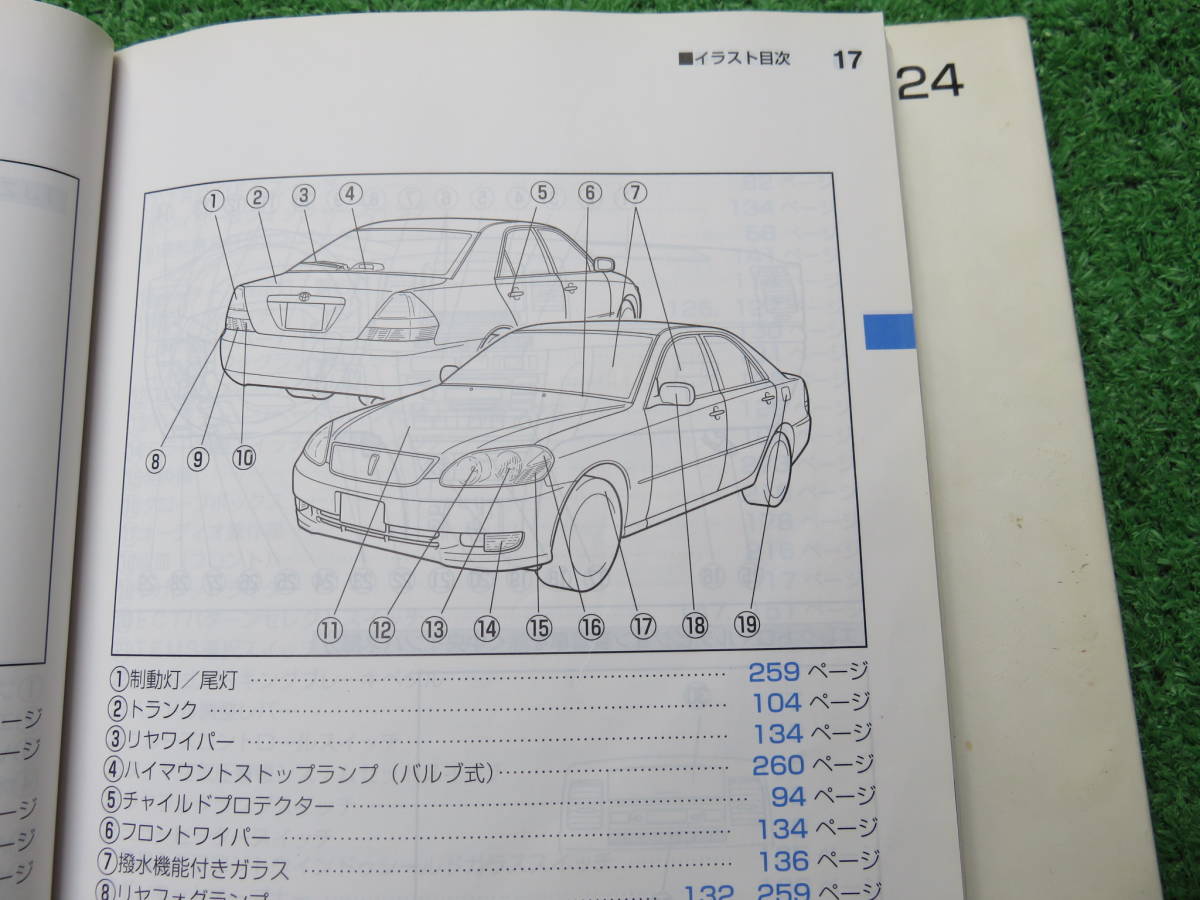 ■イラスト目次 17
24
① ② ③ ④ ⑤ ⑥ ⑦
⑧ ⑨ ⑩
⑪ ⑫ ⑬ ⑭ ⑮ ⑯ ⑰ ⑱ ⑲
①制動灯／尾灯 259 ページ
②トランク 104 ページ
③リヤワイパー 134 ページ
④ハイマウントストップランプ（バルブ式） 260 ページ
⑤チャイルドプロテクター 94 ページ
⑥フロントワイパー 134 ページ
⑦撥水機能付きガラス 136 ページ
⑧リヤフォグランプ 132, 259 ページ
ージ
ージ
ージ
ージ
ージ